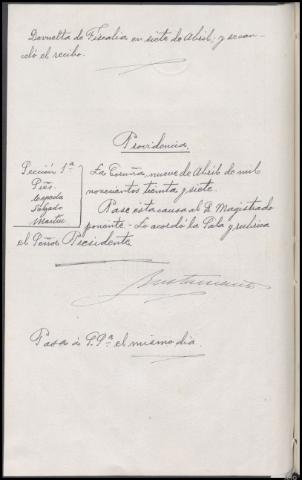 Devuelta de Fiscalía en siete de Abril, y se can-
celó el recibo.
Providencia
Sección 1ª
Piñs.
Cepeda
Salgado
Martin
La Coruña, nueve de Abril de mil
novecientos treinta y siete.
Pase esta causa al S. Magistrado
ponente.- Lo acordó la Sala y rubrica
el Señor Presidente
Pasa á S. Sª el mismo dia.